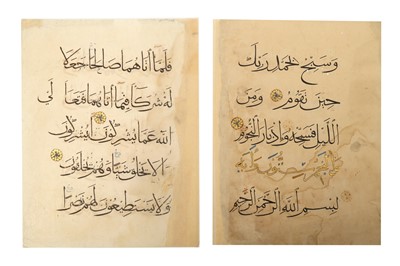 وسبح بحمد ربك
حين تقوم ومن
الليل فسبحه وادبار النجوم
بسم الله الرحمن الرحيم
فلما اتاهما صالحا جعلا
له شركاء فيما اتاهما فتعالى
الله عما يشركون ايشركون
ما لا يخلق شيئا وهم يخلقون
ولا يستطيعون لهم نصرا